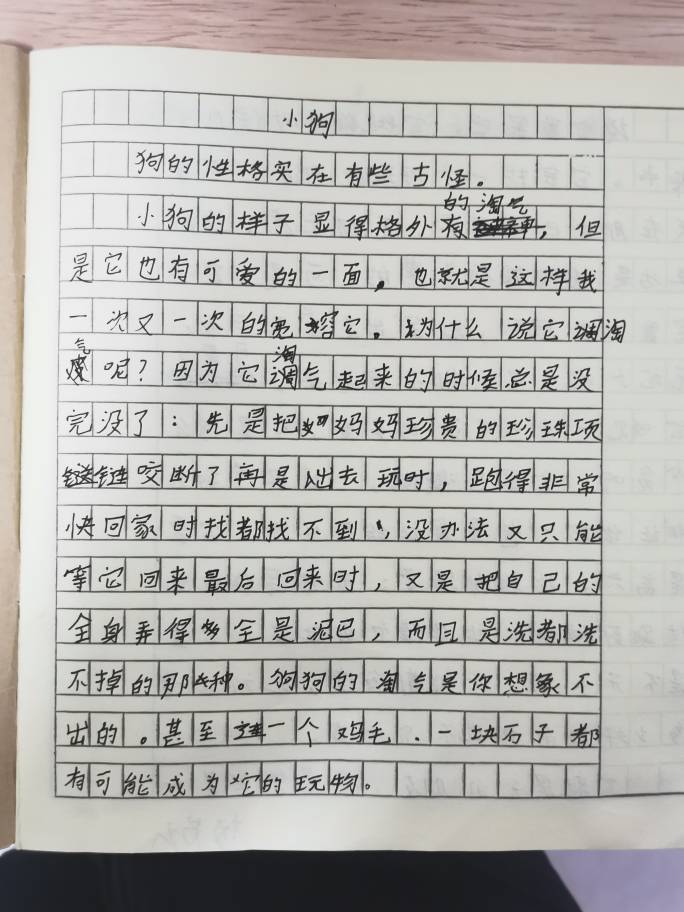 小狗
狗的性格实在有些古怪。
小狗的样子显得格外的淘气有，但
是它也有可爱的一面。也就是这样我
一次又一次的宽容它。为什么说它淘
气呢？因为它淘气起来的时候总是没
完没了：先是把妈妈珍贵的珍珠项
链咬断了再是出去玩时，跑得非常
快回家时找都找不到，没办法又只能
等它回来最后回来时，又是把自己的
全身弄得全是泥巴，而且是洗都洗
不掉的那种。狗狗的淘气是你想象不
出的。甚至一个鸡毛．一块石子都
有可能成为它的玩物。